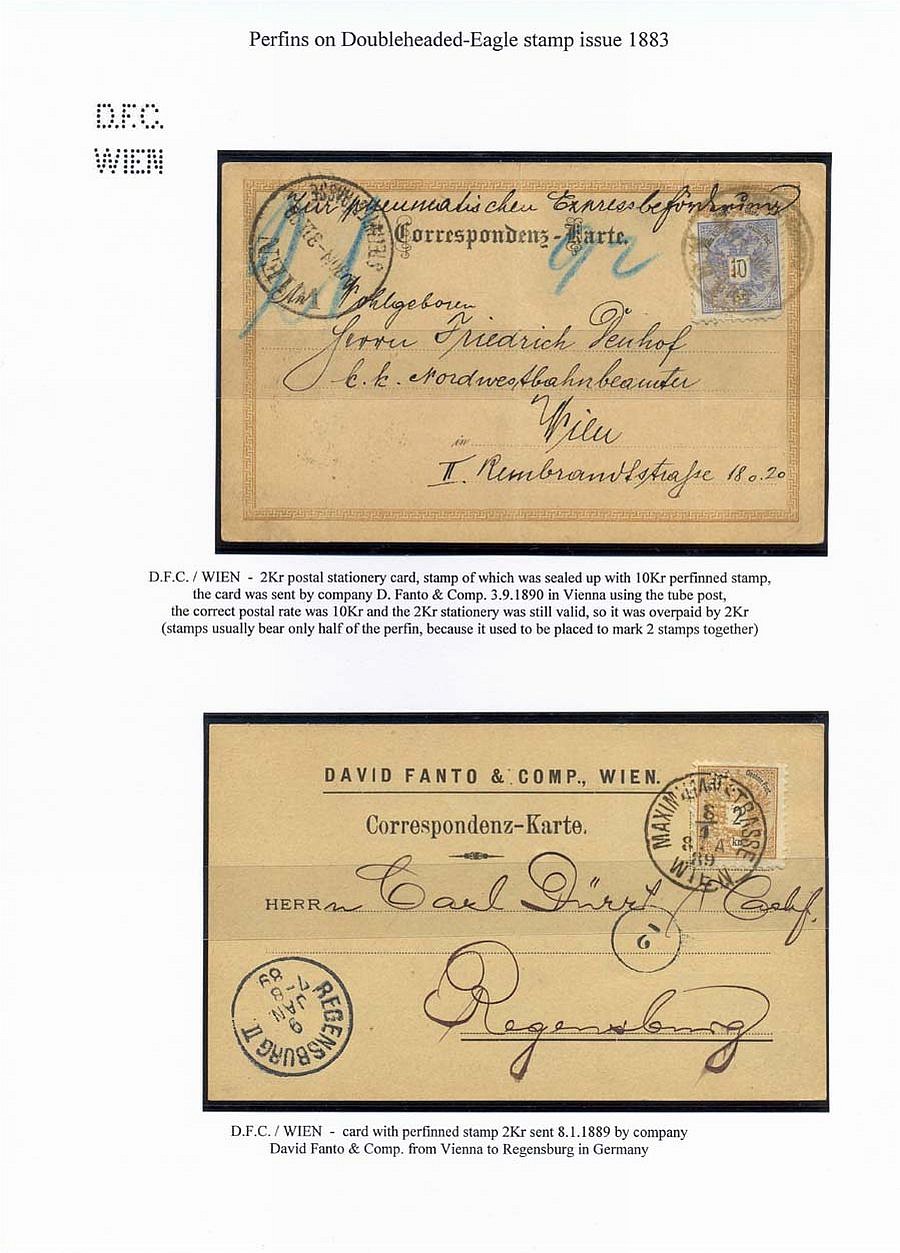 Perfins on Doubleheaded-Eagle stamp issue 1883
D.F.C.
WIEN
Zur pneumatischen Expressbeförderung
Correspondenz-Karte.
10
Wohlgeboren
Herrn Friedrich Denhof
k. k. Nordwestbahnbeamter
in Wien
II. Rembrandtstrasse 18 o. 20
D.F.C. / WIEN - 2Kr postal stationery card, stamp of which was sealed up with 10Kr perfinned stamp,
the card was sent by company D. Fanto & Comp. 3.9.1890 in Vienna using the tube post,
the correct postal rate was 10Kr and the 2Kr stationery was still valid, so it was overpaid by 2Kr
(stamps usually bear only half of the perfin, because it used to be placed to mark 2 stamps together)
DAVID FANTO & COMP., WIEN.
Correspondenz-Karte.
2
kr
MAXIMILIANSTRASSE
8
1
8 A
89
WIEN
HERRn Carl Dürr
12
Regensburg
REGENSBURG II
9
JAN
7-8
89
D.F.C. / WIEN - card with perfinned stamp 2Kr sent 8.1.1889 by company
David Fanto & Comp. from Vienna to Regensburg in Germany